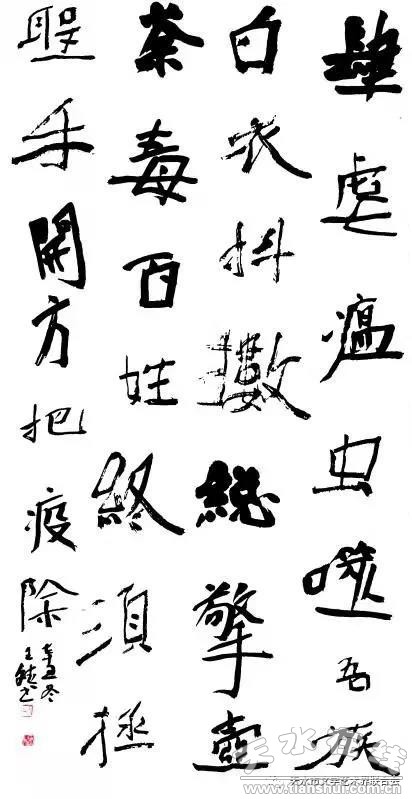 肆虐瘟虫噬吾族
白衣抖擻総擎壺
荼毒百姓終須拯
聖手開方把疫除
辛丑冬
王
书
天水在线
天水市文学艺术界联合会
www.tianshui.com.cn